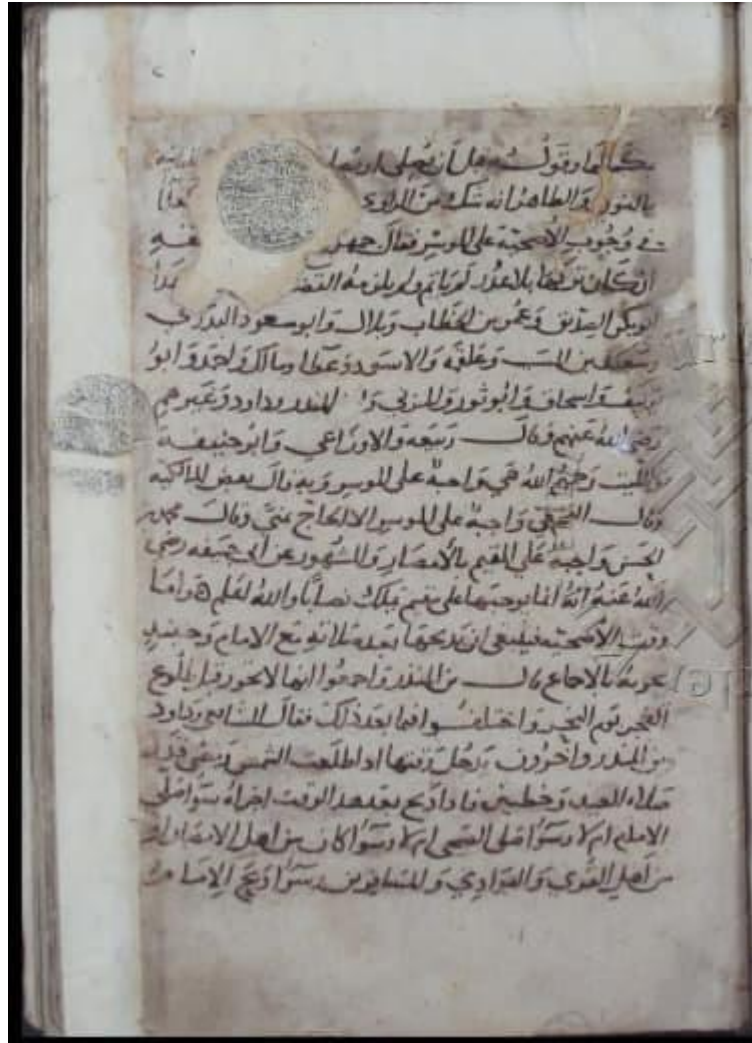 بكمالها وقوله قبل أن يصلي أو نصلي
بالنون والظاهر انه شك من الراوي
في وجوب الأضحية على الموسر فقال جمهور
ان تركها بلا عذر لم ياثم ولم يلزمه القضاء
ابو بكر الصديق وعمر بن الخطاب وبلال وابو مسعود البدري
وسعيد بن المسيب وعلقمة والاسود وعطا ومالك واحمد وابو
يوسف واسحاق وابو ثور والمزني وا المنذر وداود وغيرهم
رضي الله عنهم وقال ربيعه والاوزاعي وابو حنيفة
والليث رحمهم الله هي واجبة على الموسر وبه قال بعض المالكيه
وقال النخعي واجبة على الموسر الا الحاج بمنى وقال محمد بن
الحسن واجبة على المقيم بالأمصار والمشهور عن ابي حنيفه رضي
الله عنه انه انما يوجبها على مقيم يملك نصابا والله اعلم واما
وقت الأضحية فينبغي ان يذبحها بعد صلاته مع الامام وحينيذ
تجزيه بالاجماع قال بن المنذر واجمعوا انها لا تجوز قبل طلوع
الفجر يوم النحر واختلفوا فيما بعد ذلك فقال الشافعي وداود
بن المنذر واخرون يدخل وقتها اذا طلعت الشمس ومضى قدر
صلاه العيد وخطبتين فاذا ذبح بعد هذا الوقت اجزاه سوا صلى
الامام ام لا وسوا صلى الضحى ام لا وسوا كان من اهل الامصار او
من اهل القرى والبوادي والمسافرين وسوا ذبح الامام